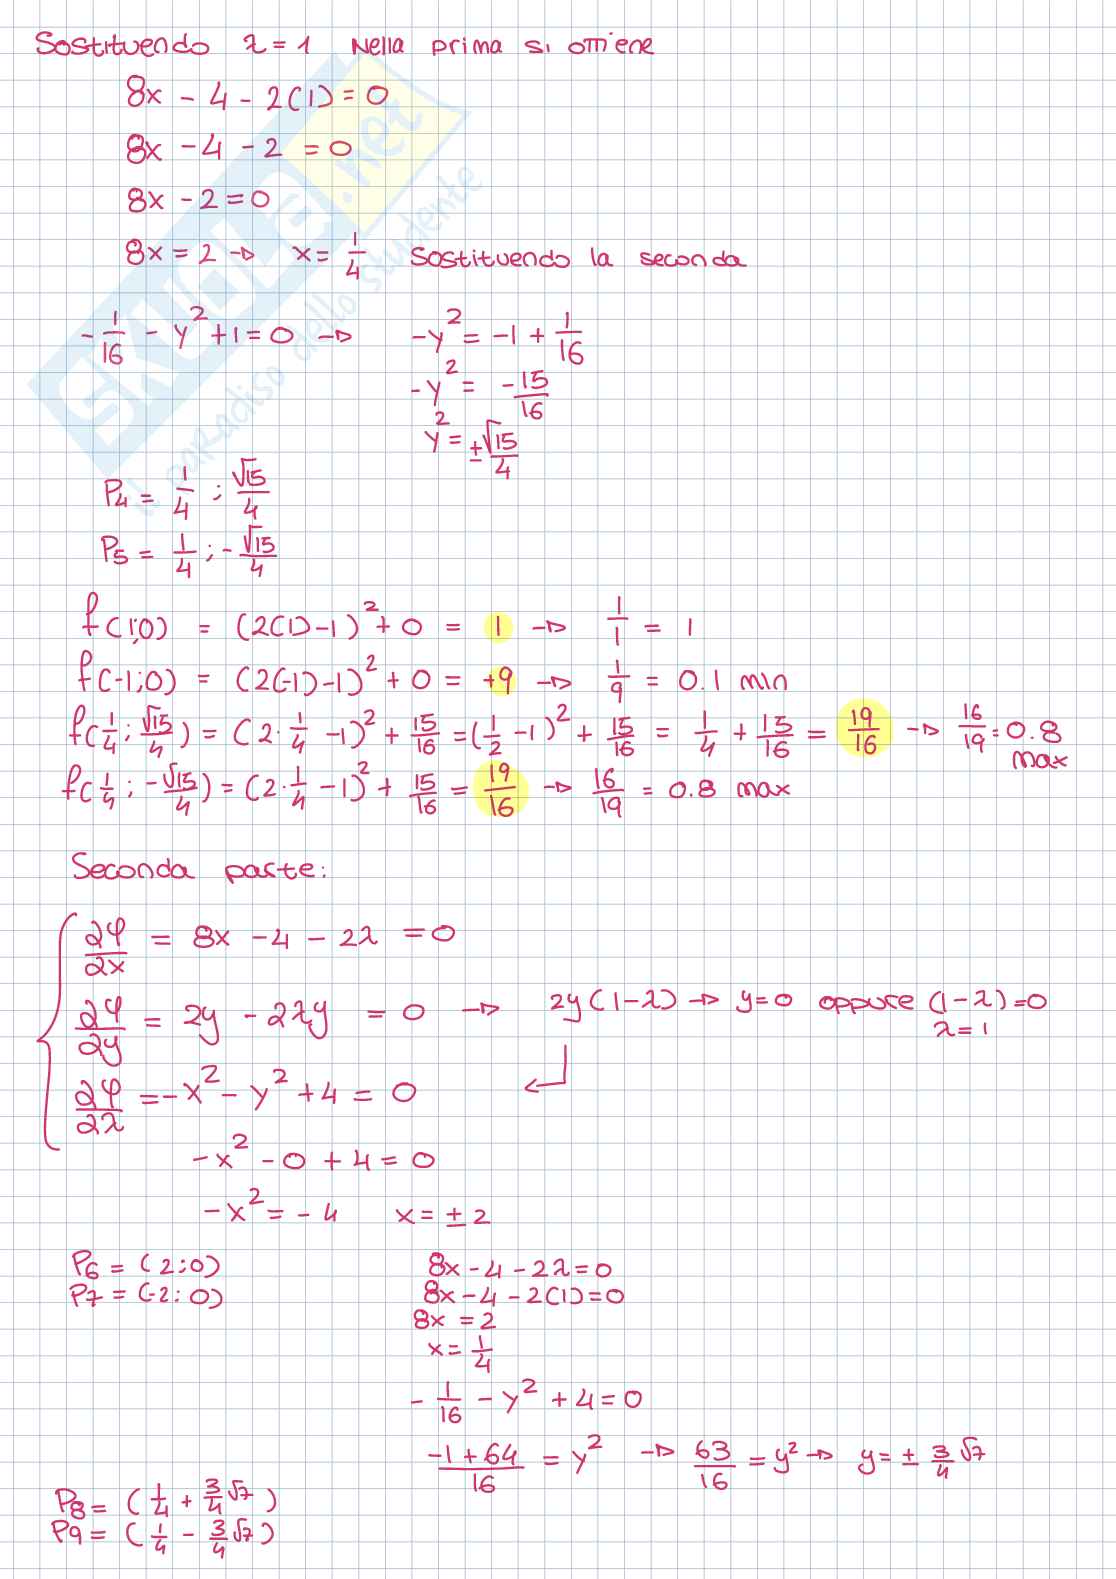 Sostituendo λ = 1 nella prima si ottiene
8x - 4 - 2(1) = 0
8x - 4 - 2 = 0
8x - 2 = 0
8x = 2 → x = 1/4 Sostituendo la seconda
-1/16 - y² + 1 = 0 → -y² = -1 + 1/16
-y² = -15/16
y² = ±√15/4
P4 = 1/4 ; √15/4
P5 = 1/4 ; -√15/4
f(1;0) = (2(1)-1)² + 0 = 1 → 1/1 = 1
f(-1;0) = (2(-1)-1)² + 0 = +9 → 1/9 = 0.1 min
f(1/4 ; √15/4) = (2·1/4 - 1)² + 15/16 = (1/2 - 1)² + 15/16 = 1/4 + 15/16 = 19/16 → 16/19 = 0.8 max
f(1/4 ; -√15/4) = (2·1/4 - 1)² + 15/16 = 19/16 → 16/19 = 0.8 max
Seconda parte:
∂φ/∂x = 8x - 4 - 2λ = 0
∂φ/∂y = 2y - 2λy = 0 → 2y(1-λ) → y = 0 oppure (1-λ) = 0
λ = 1
∂φ/∂λ = -x² - y² + 4 = 0
-x² - 0 + 4 = 0
-x² = -4 x = ±2
P6 = (2;0)
P7 = (-2;0)
8x - 4 - 2λ = 0
8x - 4 - 2(1) = 0
8x = 2
x = 1/4
-1/16 - y² + 4 = 0
(-1+64)/16 = y² → 63/16 = y² → y = ± 3/4 √7
P8 = (1/4 + 3/4 √7)
P9 = (1/4 - 3/4 √7)
SKUOLA.net
il paradiso dello studente